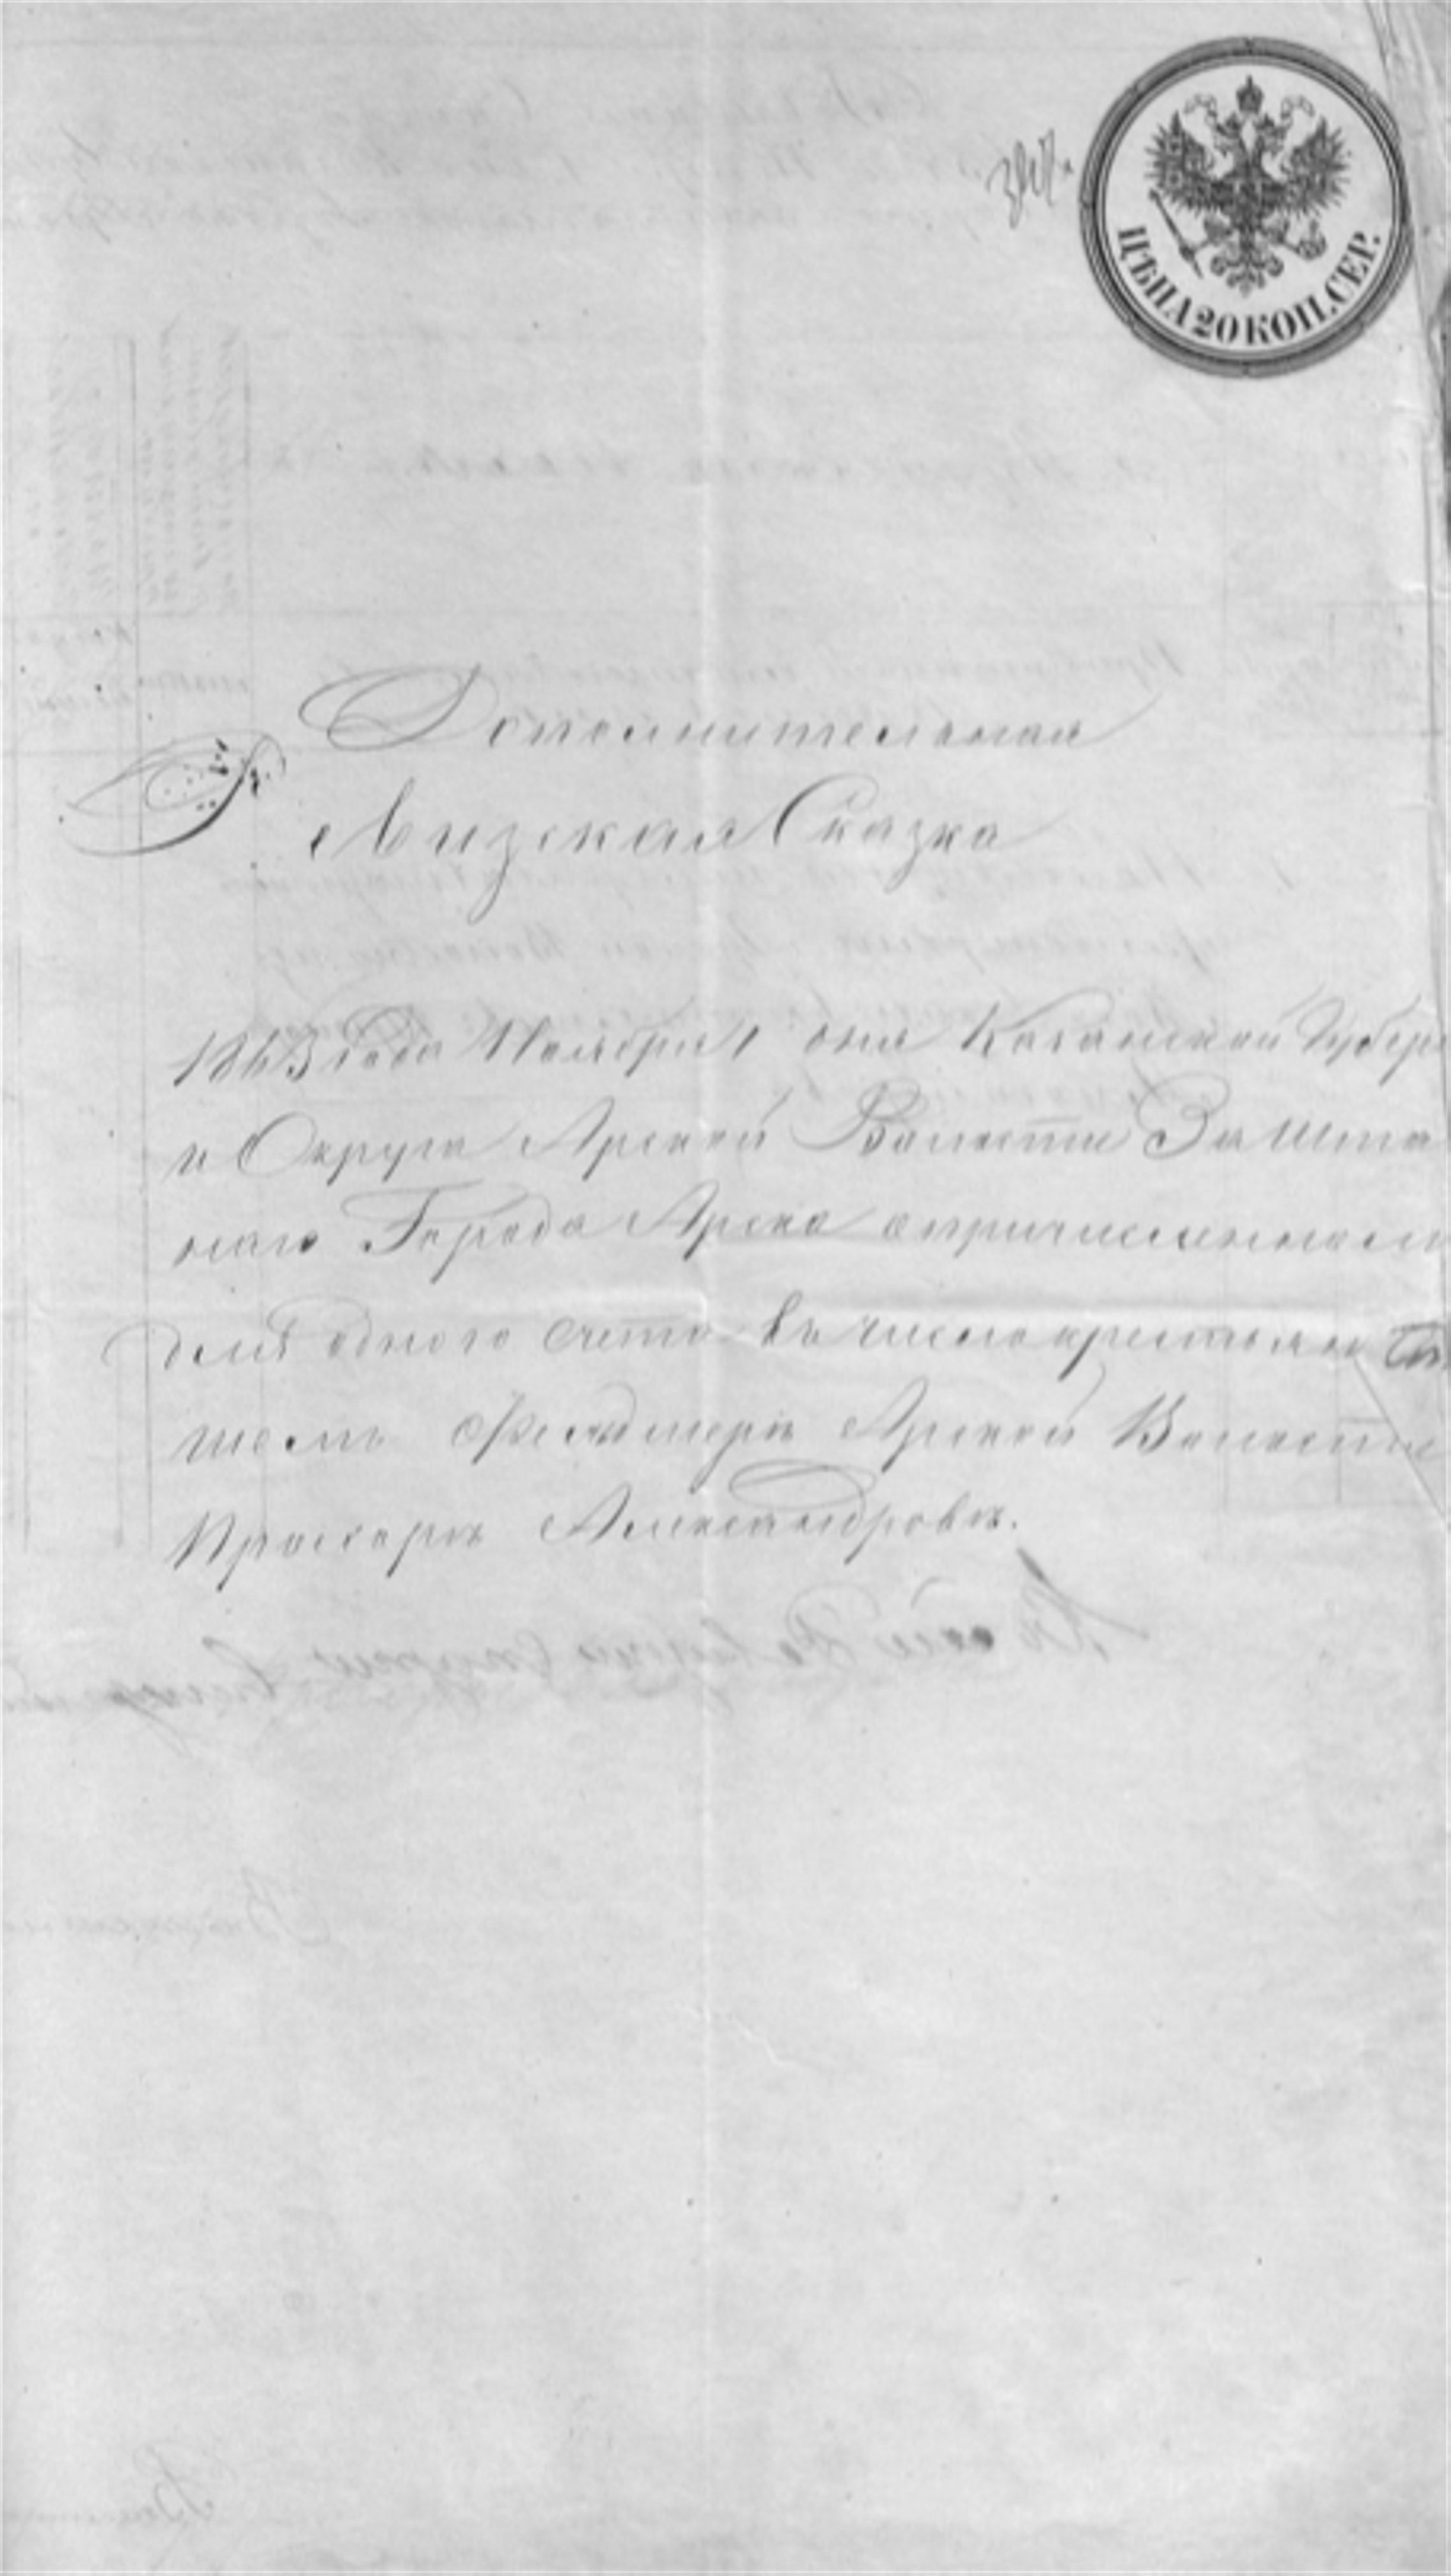 ЦѢНА 20 КОП. СЕР.
Дополнительная
Ревизская Сказка
1863 года Ноября 1 дня Казанской Губер
и Округа Арской Волости Зашта
наго Города Арска о причисленном
для одного счета въ число крестьян
шемъ Фельдшерѣ Арской Волости
Прохорѣ Александровѣ.